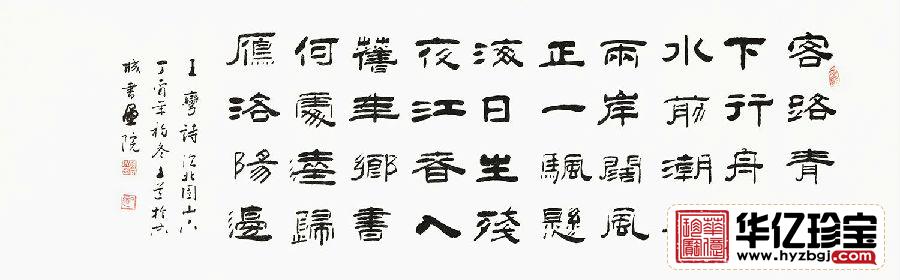 客路青
下行舟
水前潮
兩岸闊風
正一颿懸
海日生殘
夜江春入
舊年鄉書
何處達歸
雁洛陽邊
王灣詩次北固山下
丁酉年初冬
書畫院
华亿珍宝
www.hyzbgj.com